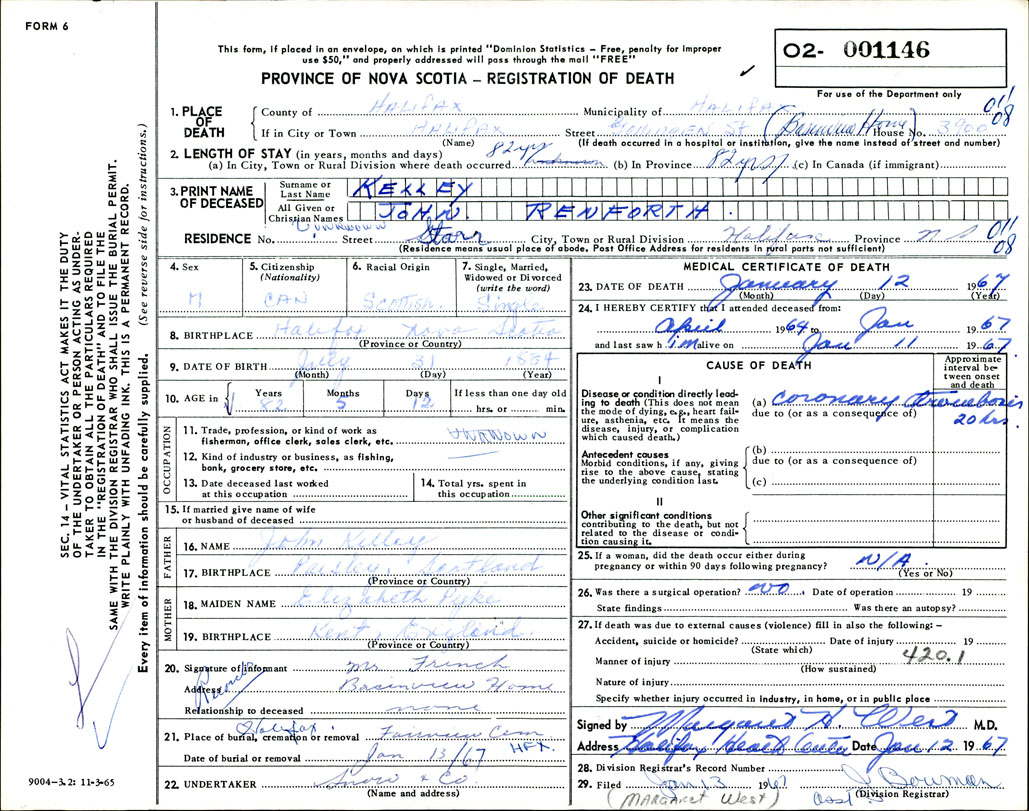 FORM 6
This form, if placed in an envelope, on which is printed "Dominion Statistics – Free, penalty for improper
use $50," and properly addressed will pass through the mail "FREE"
PROVINCE OF NOVA SCOTIA – REGISTRATION OF DEATH
O2- 001146
For use of the Department only
011
08
1. PLACE OF DEATH
County of HALIFAX Municipality of HALIFAX
If in City or Town HALIFAX Street GOTTINGEN ST (Basinview Home) House No. 3900
(Name) (If death occurred in a hospital or institution, give the name instead of street and number)
2. LENGTH OF STAY (in years, months and days)
(a) In City, Town or Rural Division where death occurred 82 yrs (b) In Province 82 yrs (c) In Canada (if immigrant)
3. PRINT NAME OF DECEASED
Surname or Last Name KELLEY
All Given or Christian Names JOHN RENFORTH.
RESIDENCE No. Unknown Street Starr City, Town or Rural Division Halifax Province N S
011
08
(Residence means usual place of abode. Post Office Address for residents in rural parts not sufficient)
4. Sex M
5. Citizenship (Nationality) CAN
6. Racial Origin Scottish
7. Single, Married, Widowed or Divorced (write the word) Single
8. BIRTHPLACE Halifax Nova Scotia
(Province or Country)
9. DATE OF BIRTH July 31 1884
(Month) (Day) (Year)
10. AGE in Years 82 Months 5 Days 12 If less than one day old hrs. or min.
OCCUPATION
11. Trade, profession, or kind of work as fisherman, office clerk, sales clerk, etc. UNKNOWN
12. Kind of industry or business, as fishing, bank, grocery store, etc.
13. Date deceased last worked at this occupation
14. Total yrs. spent in this occupation
15. If married give name of wife or husband of deceased
FATHER
16. NAME John Kelley
17. BIRTHPLACE Paisley, Scotland
(Province or Country)
MOTHER
18. MAIDEN NAME Elizabeth Pyke
19. BIRTHPLACE Kent, England.
(Province or Country)
20. Signature of informant Mr. French
Address Basinview Home
Relationship to deceased none
21. Place of burial, cremation or removal Halifax Fairview Cem
HFX.
Date of burial or removal Jan 13/67
22. UNDERTAKER Snow & Co.
(Name and address)
MEDICAL CERTIFICATE OF DEATH
23. DATE OF DEATH January 12 1967
(Month) (Day) (Year)
24. I HEREBY CERTIFY that I attended deceased from:
April 1964 to Jan 1967
and last saw him alive on Jan 11 1967.
CAUSE OF DEATH
Approximate interval between onset and death
I
Disease or condition directly leading to death (This does not mean the mode of dying, e.g., heart failure, asthenia, etc. It means the disease, injury, or complication which caused death.)
(a) coronary thrombosis
due to (or as a consequence of) 20 hrs.
Antecedent causes
Morbid conditions, if any, giving rise to the above cause, stating the underlying condition last.
(b)
due to (or as a consequence of)
(c)
II
Other significant conditions
contributing to the death, but not related to the disease or condition causing it.
25. If a woman, did the death occur either during pregnancy or within 90 days following pregnancy? N/A
(Yes or No)
26. Was there a surgical operation? NO. Date of operation 19
State findings Was there an autopsy?
27. If death was due to external causes (violence) fill in also the following: –
Accident, suicide or homicide? Date of injury 19
(State which)
420.1
Manner of injury
(How sustained)
Nature of injury
Specify whether injury occurred in industry, in home, or in public place
Signed by Margaret H. West M.D.
Address Halifax Health Centre Date Jan 12 1967
28. Division Registrar's Record Number
29. Filed Jan 13 1967 Bowman
(MARGARET WEST) Asst (Division Registrar)
SEC. 14 – VITAL STATISTICS ACT MAKES IT THE DUTY
OF THE UNDERTAKER OR PERSON ACTING AS UNDER-
TAKER TO OBTAIN ALL THE PARTICULARS REQUIRED
IN THE "REGISTRATION OF DEATH" AND TO FILE THE
SAME WITH THE DIVISION REGISTRAR WHO SHALL ISSUE THE BURIAL PERMIT.
WRITE PLAINLY WITH UNFADING INK. THIS IS A PERMANENT RECORD.
Every item of information should be carefully supplied. (See reverse side for instructions.)
9004–3.2: 11-3-65